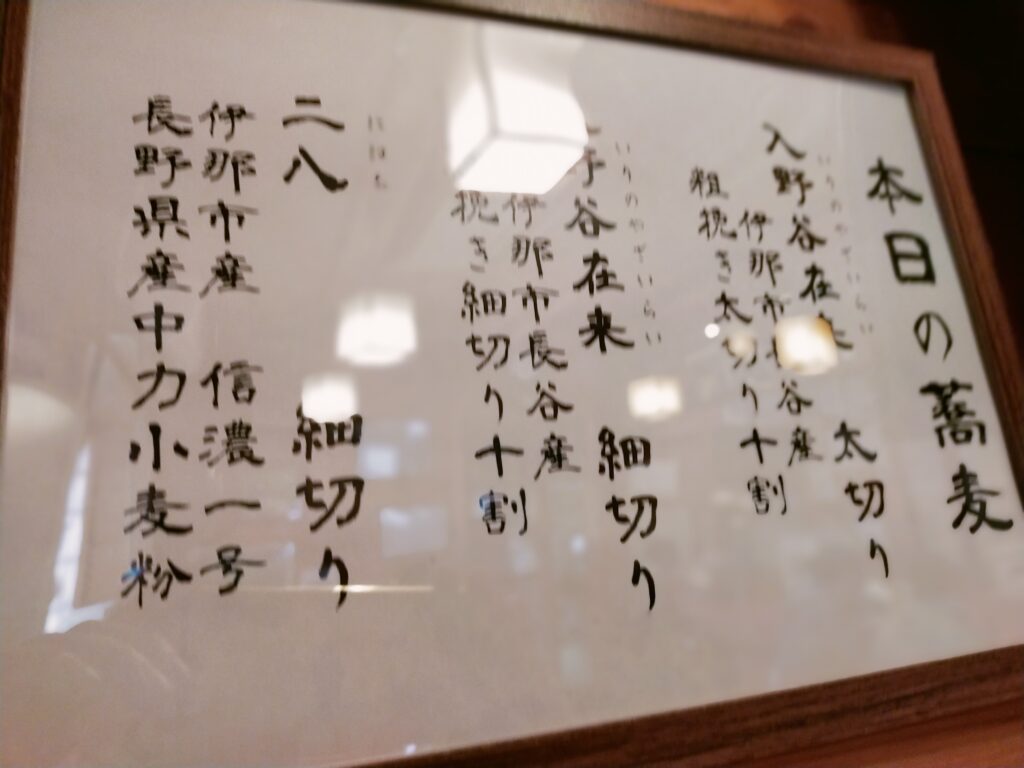 本日の蕎麦
いりのやざいらい
入野谷在来 太切り
伊那市長谷産
粗挽き太切り十割
いりのやざいらい
野谷在来 細切り
伊那市長谷産
挽き細切り十割
にはち
二八 細切り
伊那市産 信濃一号
長野県産中力小麦粉